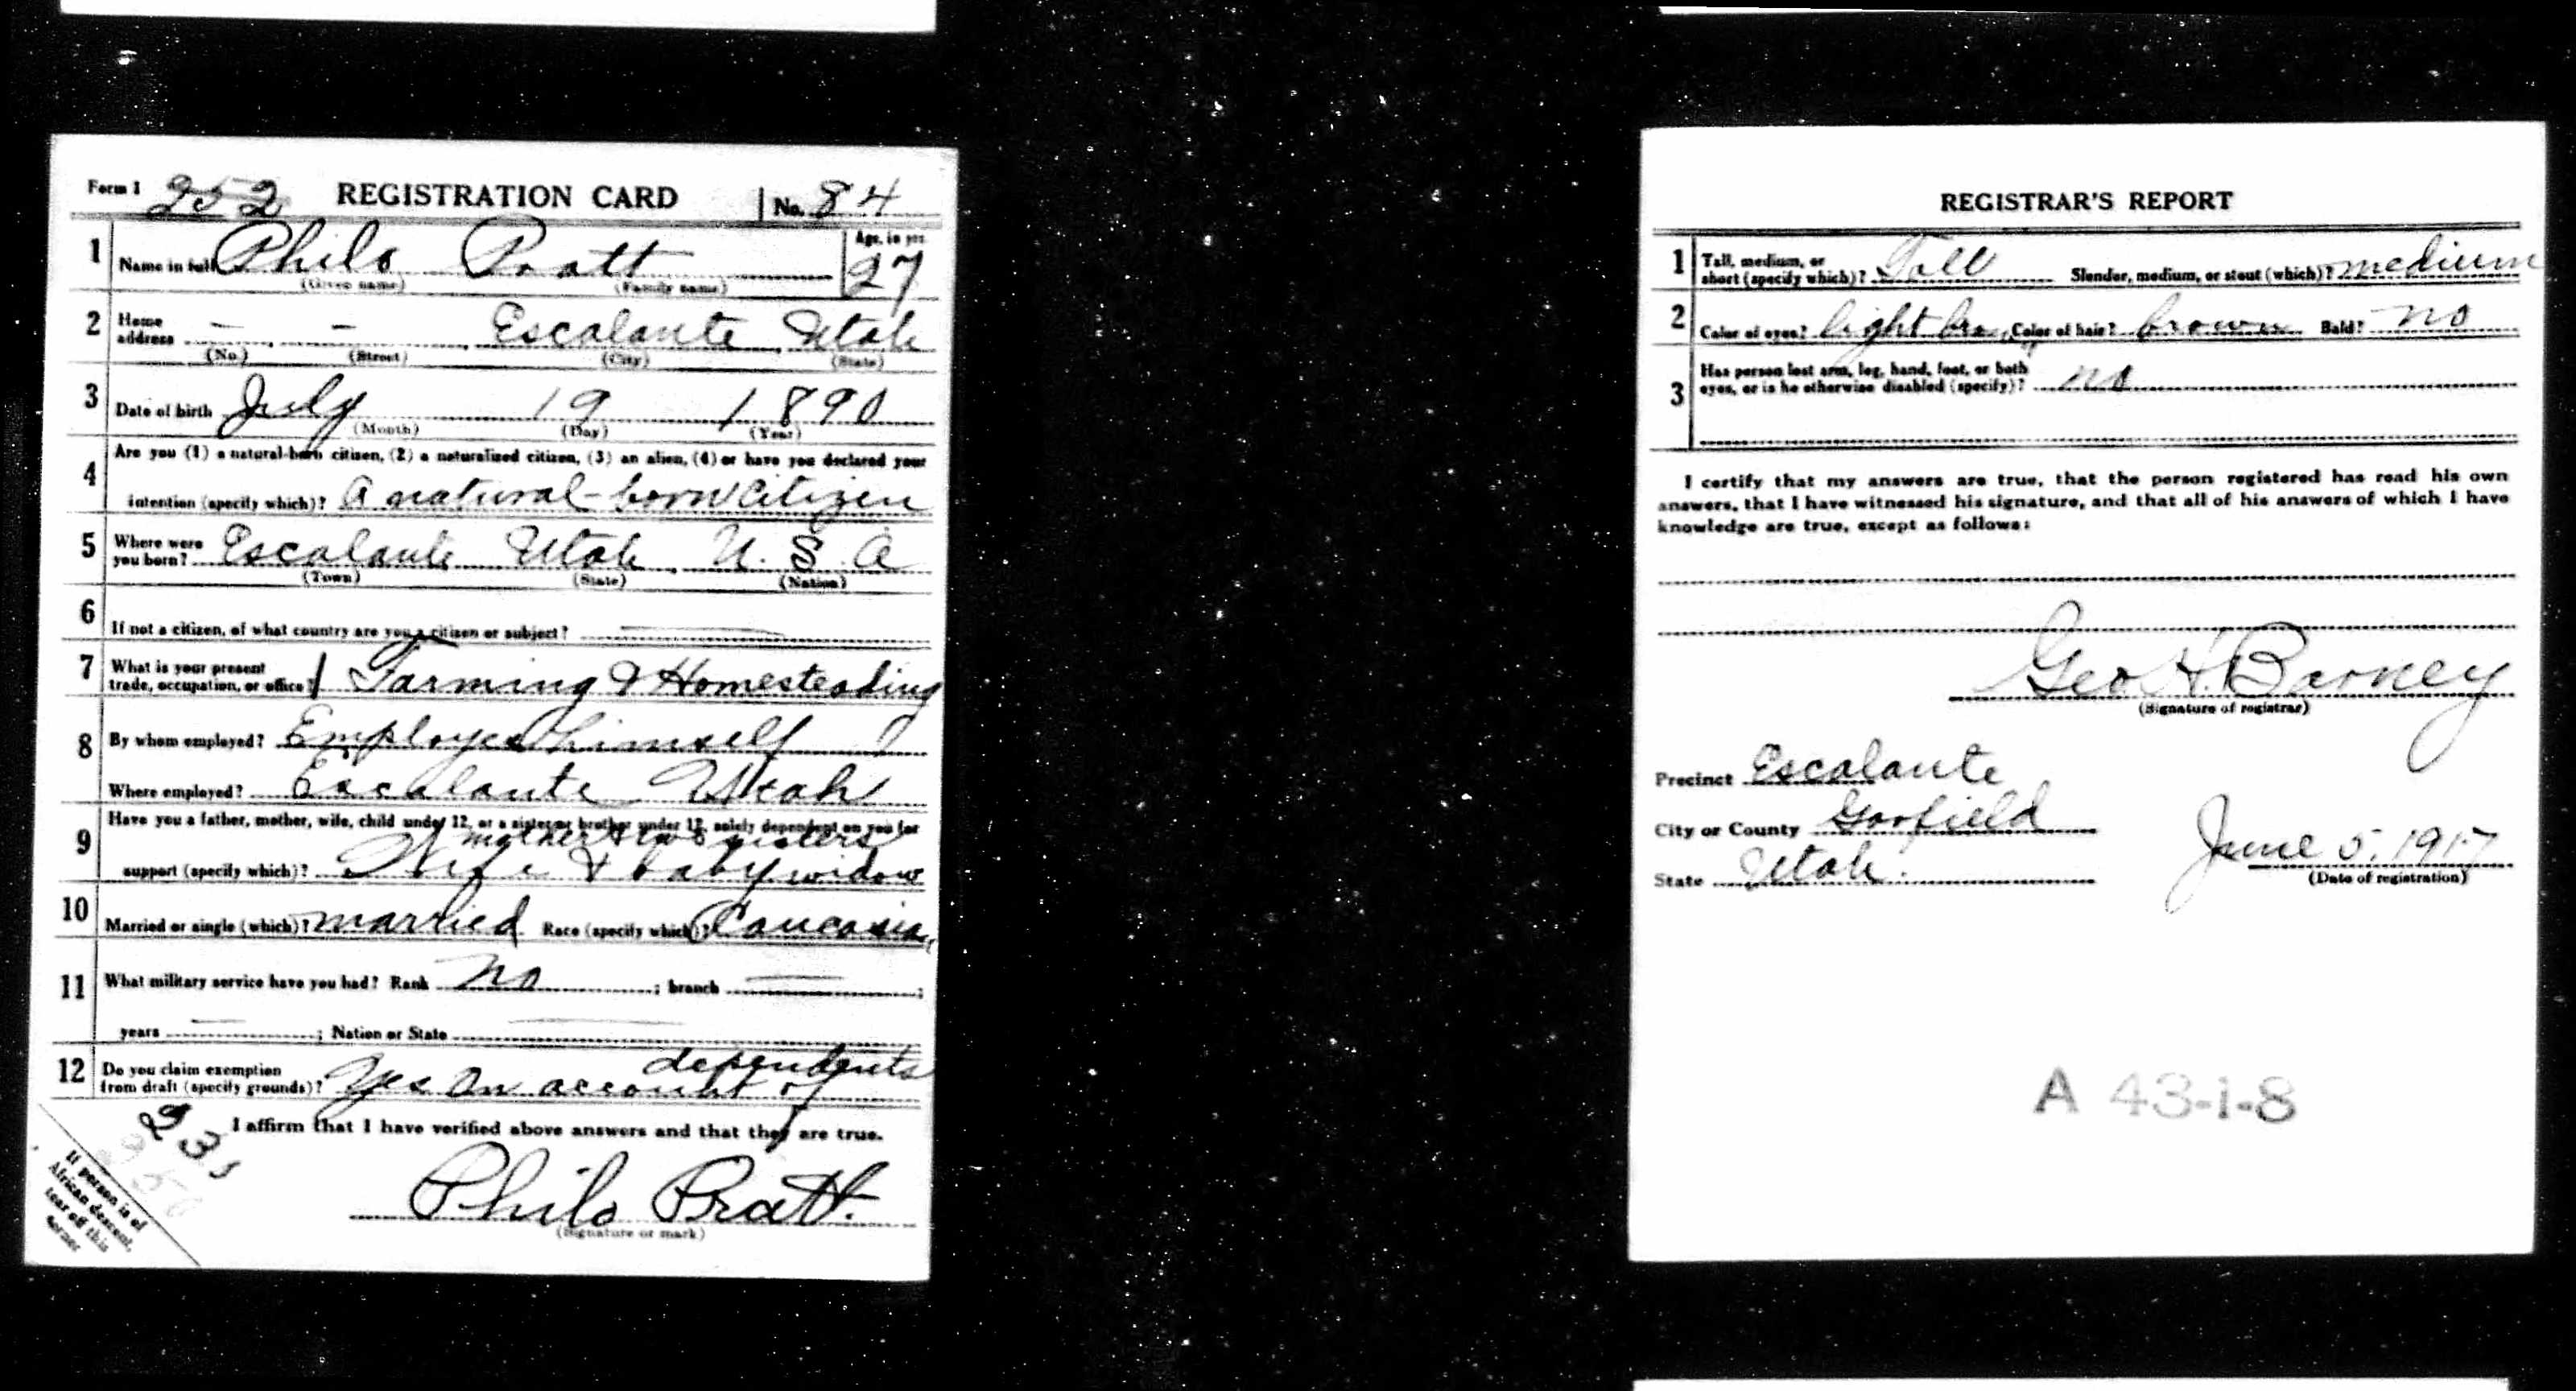 Form 1 252 REGISTRATION CARD No. 84
1 Name in full Philo Pratt Age, in yrs. 27
(Given name) (Family name)
2 Home address — — Escalante Utah
(No.) (Street) (City) (State)
3 Date of birth July 19 1890
(Month) (Day) (Year)
4 Are you (1) a natural-born citizen, (2) a naturalized citizen, (3) an alien, (4) or have you declared your
intention (specify which)? A natural-born citizen
5 Where were you born? Escalante Utah U. S. A
(Town) (State) (Nation)
6 If not a citizen, of what country are you a citizen or subject? —
7 What is your present trade, occupation, or office? Farming & Homesteading
8 By whom employed? Employed himself
Where employed? Escalante Utah
9 Have you a father, mother, wife, child under 12, or a sister or brother under 12, solely dependent on you for
mother & two sisters
support (specify which)? Wife & baby widow
10 Married or single (which)? married Race (specify which)? Caucasian
11 What military service have you had? Rank no ; branch — ;
years — ; Nation or State —
12 Do you claim exemption from draft (specify grounds)? Yes on account of dependents
I affirm that I have verified above answers and that they are true.
Philo Pratt.
(Signature or mark)
If person is of
African descent,
tear off this
corner
REGISTRAR'S REPORT
1 Tall, medium, or short (specify which)? Tall Slender, medium, or stout (which)? medium
2 Color of eyes? light bro Color of hair? brown Bald? no
3 Has person lost arm, leg, hand, foot, or both
eyes, or is he otherwise disabled (specify)? no
I certify that my answers are true, that the person registered has read his own
answers, that I have witnessed his signature, and that all of his answers of which I have
knowledge are true, except as follows:
Geo H. Barney
(Signature of registrar)
Precinct Escalante
City or County Garfield
State Utah.
June 5, 1917
(Date of registration)
A 43-1-8